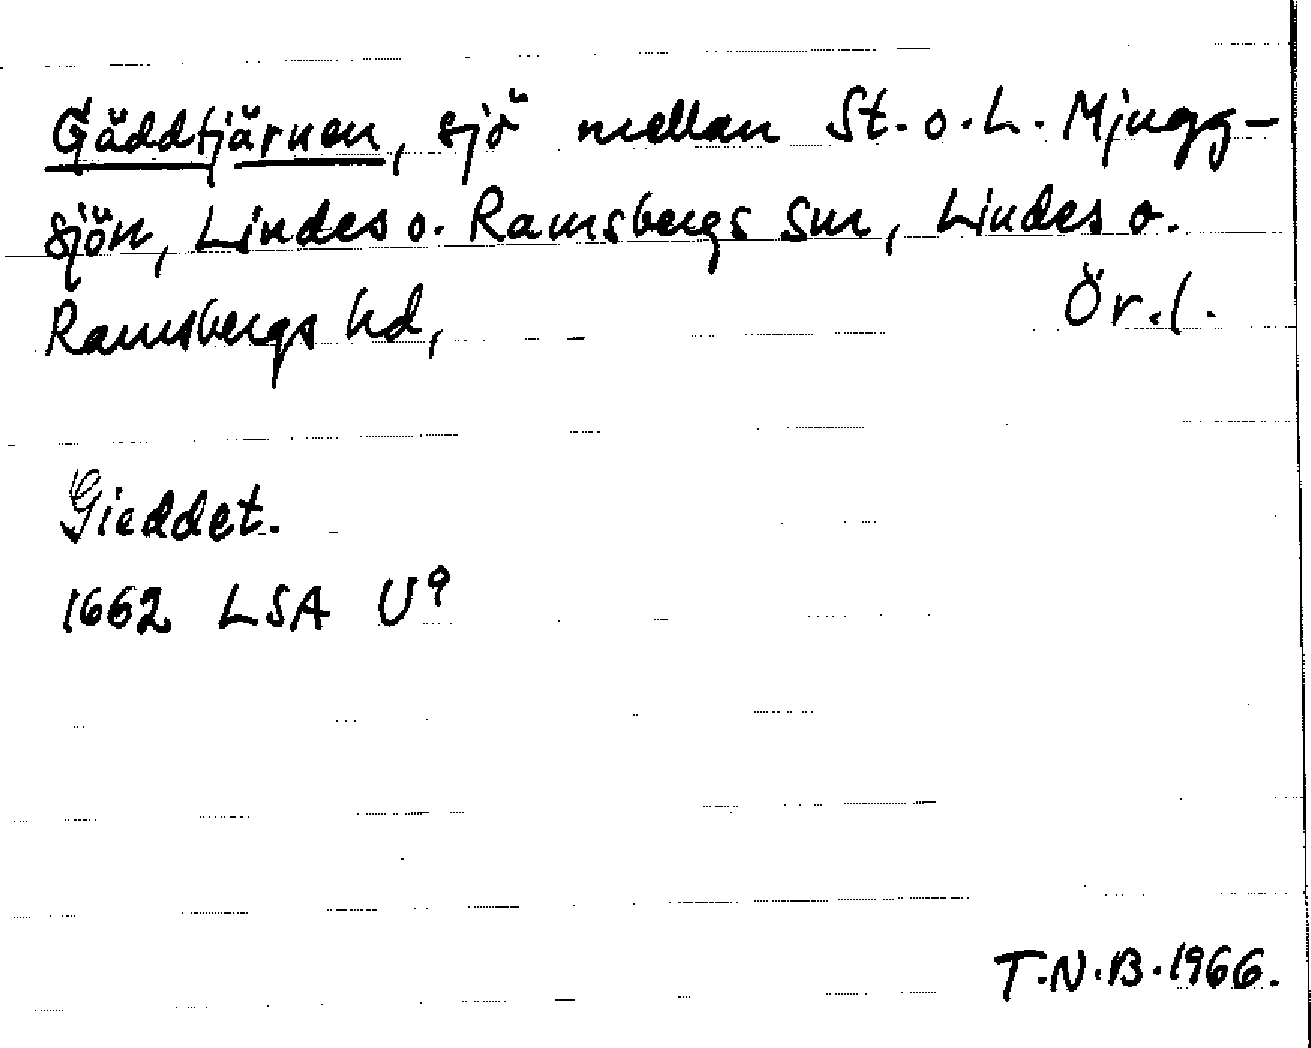 Gäddtjärnen, sjö mellan St. o. L. Mjugg-
sjön, Lindes o. Ramsbergs snr, Lindes o.
Ramsbergs hd, Ör. l.
Gieddet.
1662 LSA U9
T.N.B. 1966.